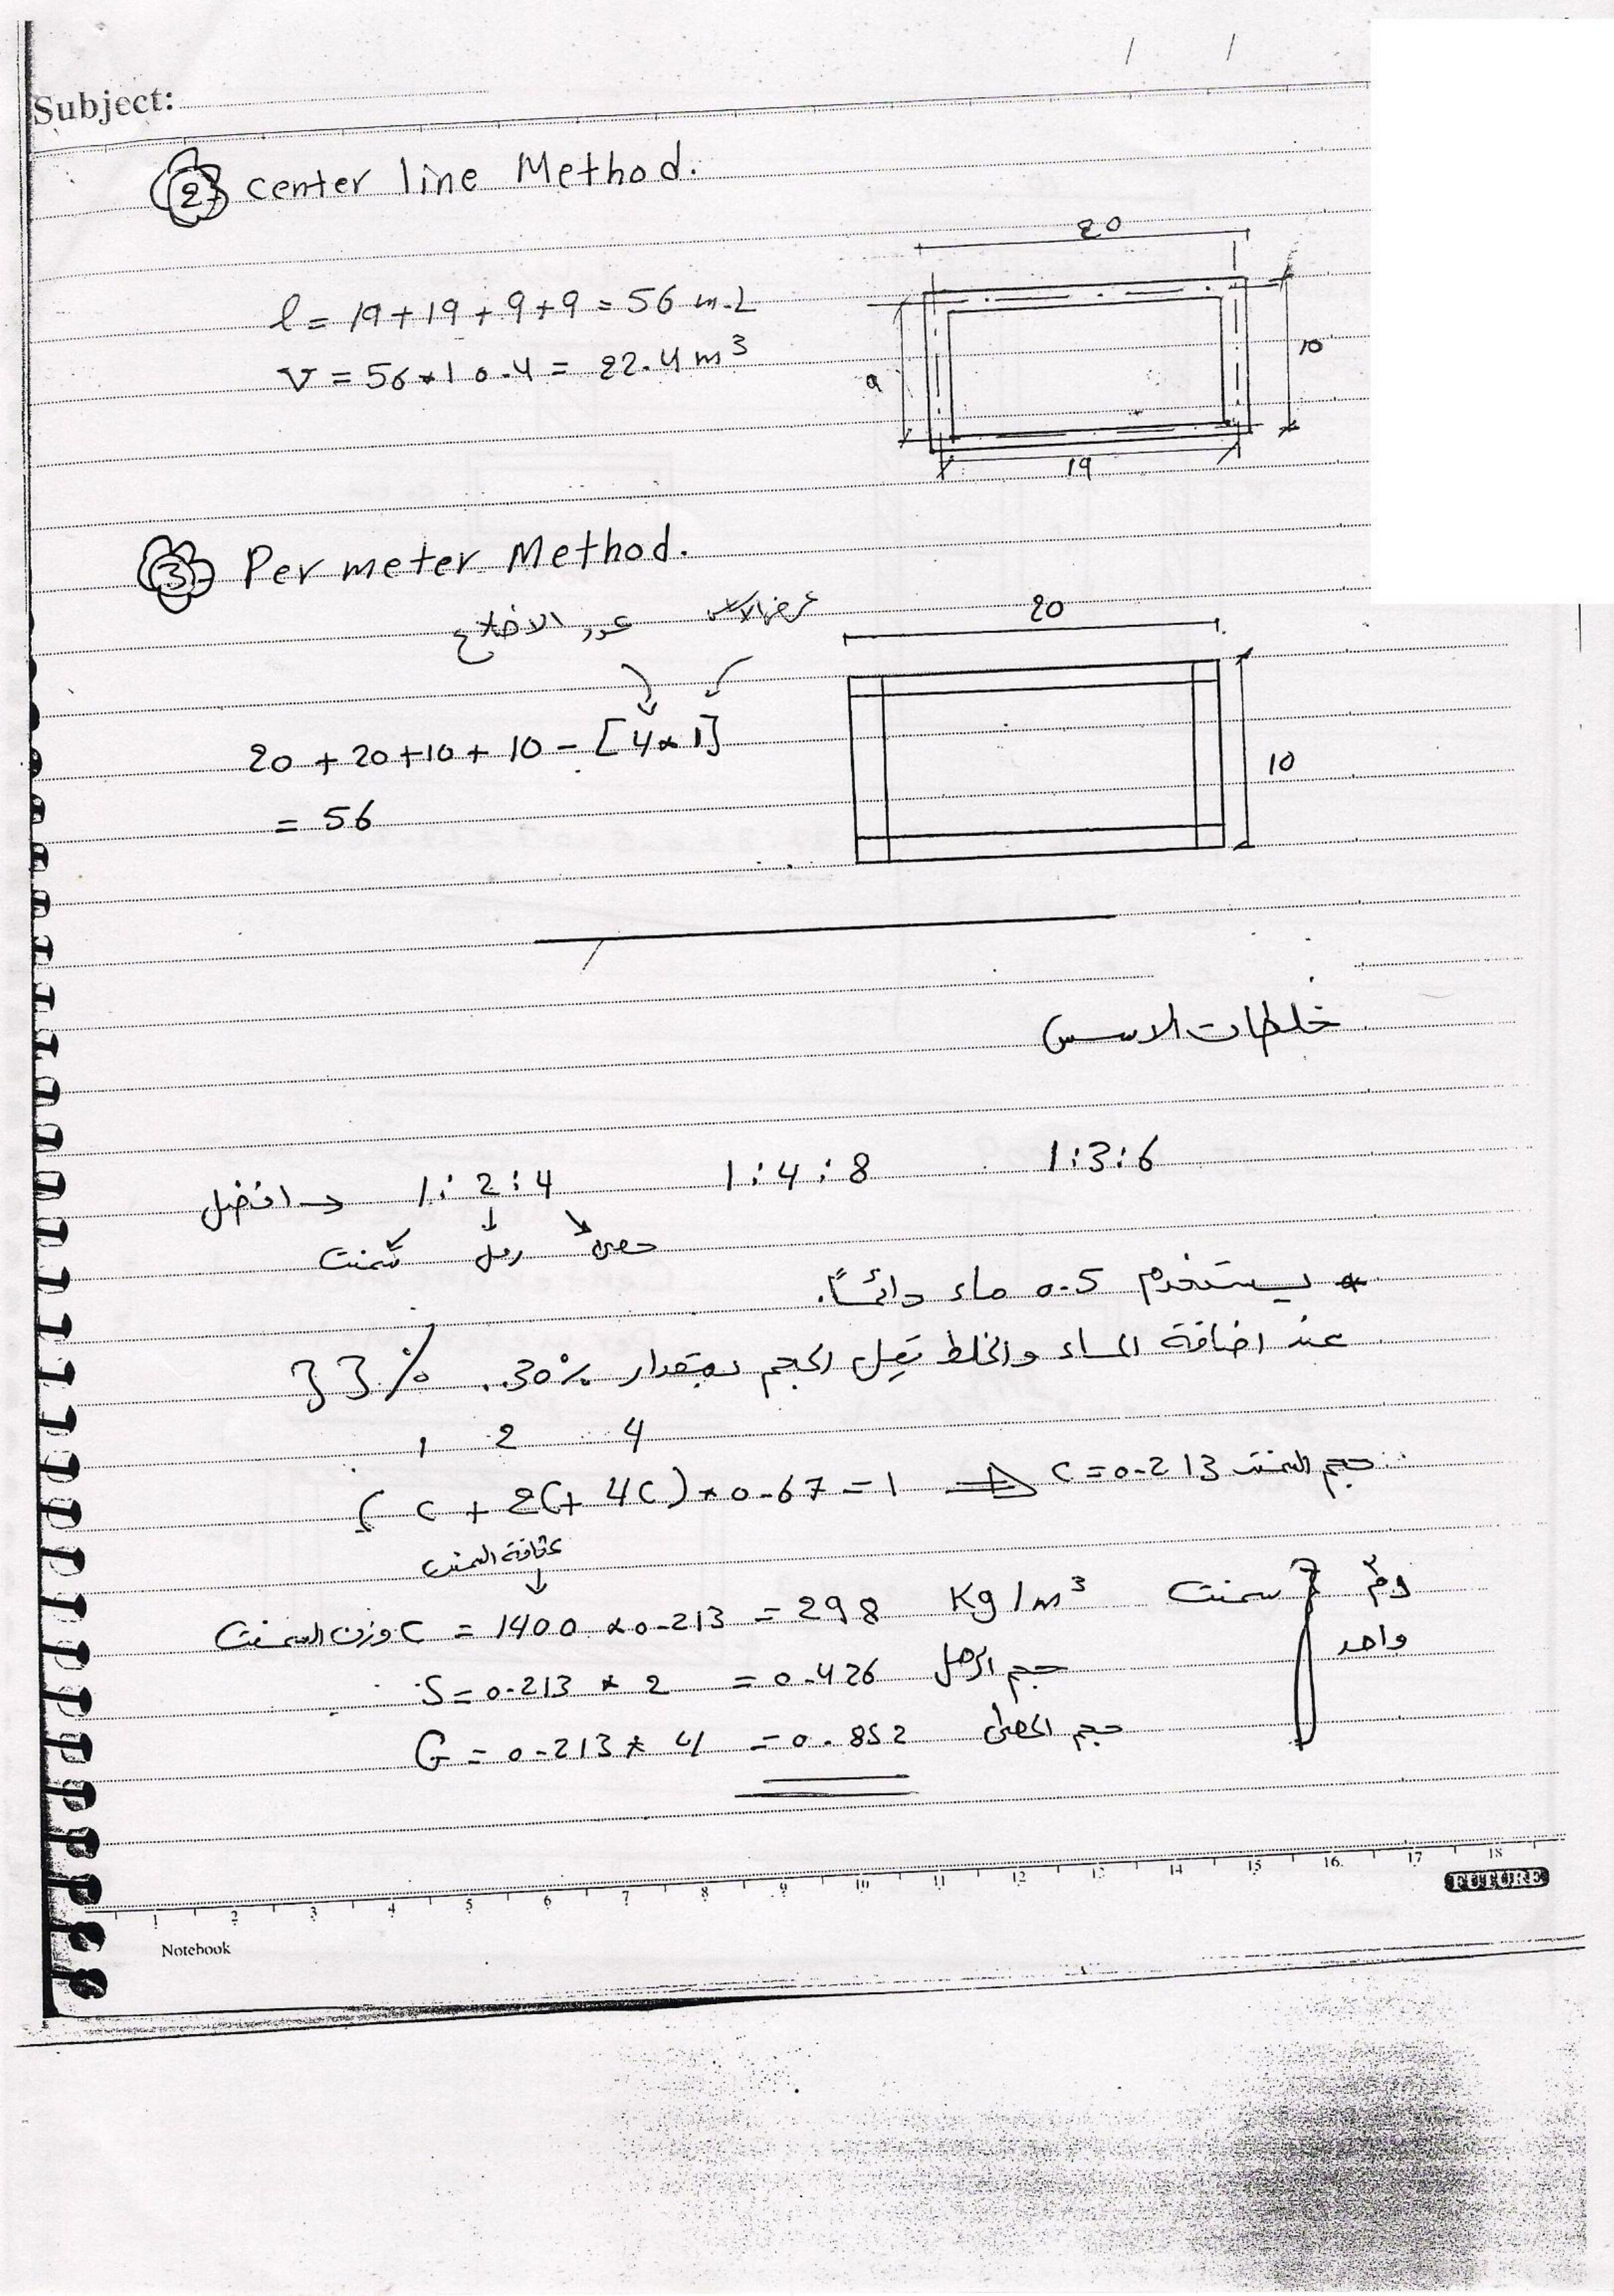 Subject:
2 center line Method.
20
l = 19 + 19 + 9 + 9 = 56 m.L
V = 56 * 1 0.4 = 22.4 m3
10
9
19
3 Per meter Method.
عدد الاضلاع
20
20 + 20 + 10 + 10 - [4 * 1]
10
= 56
خلطات الاسس
1:3:6
1:4:8
1:2:4 → افضل
حصى رمل سمنت
* يستخدم 0.5 ماء دائماً.
عند اضافة الماء والخلط تقل الحجم بمقدار 30% . 33%
1 2 4
(C + 2C + 4C) * 0.67 = 1 ⇒ C = 0.213 حجم السمنت
كثافة السمنت
وزن السمنت C = 1400 * 0.213 = 298 Kg/m3 سمنت
واحد
S = 0.213 * 2 = 0.426 حجم الرمل
G = 0.213 * 4 = 0.852 حجم الحصى
1 2 3 4 5 6 7 8 9 10 11 12 13 14 15 16 17 18
FUTURE
Notebook